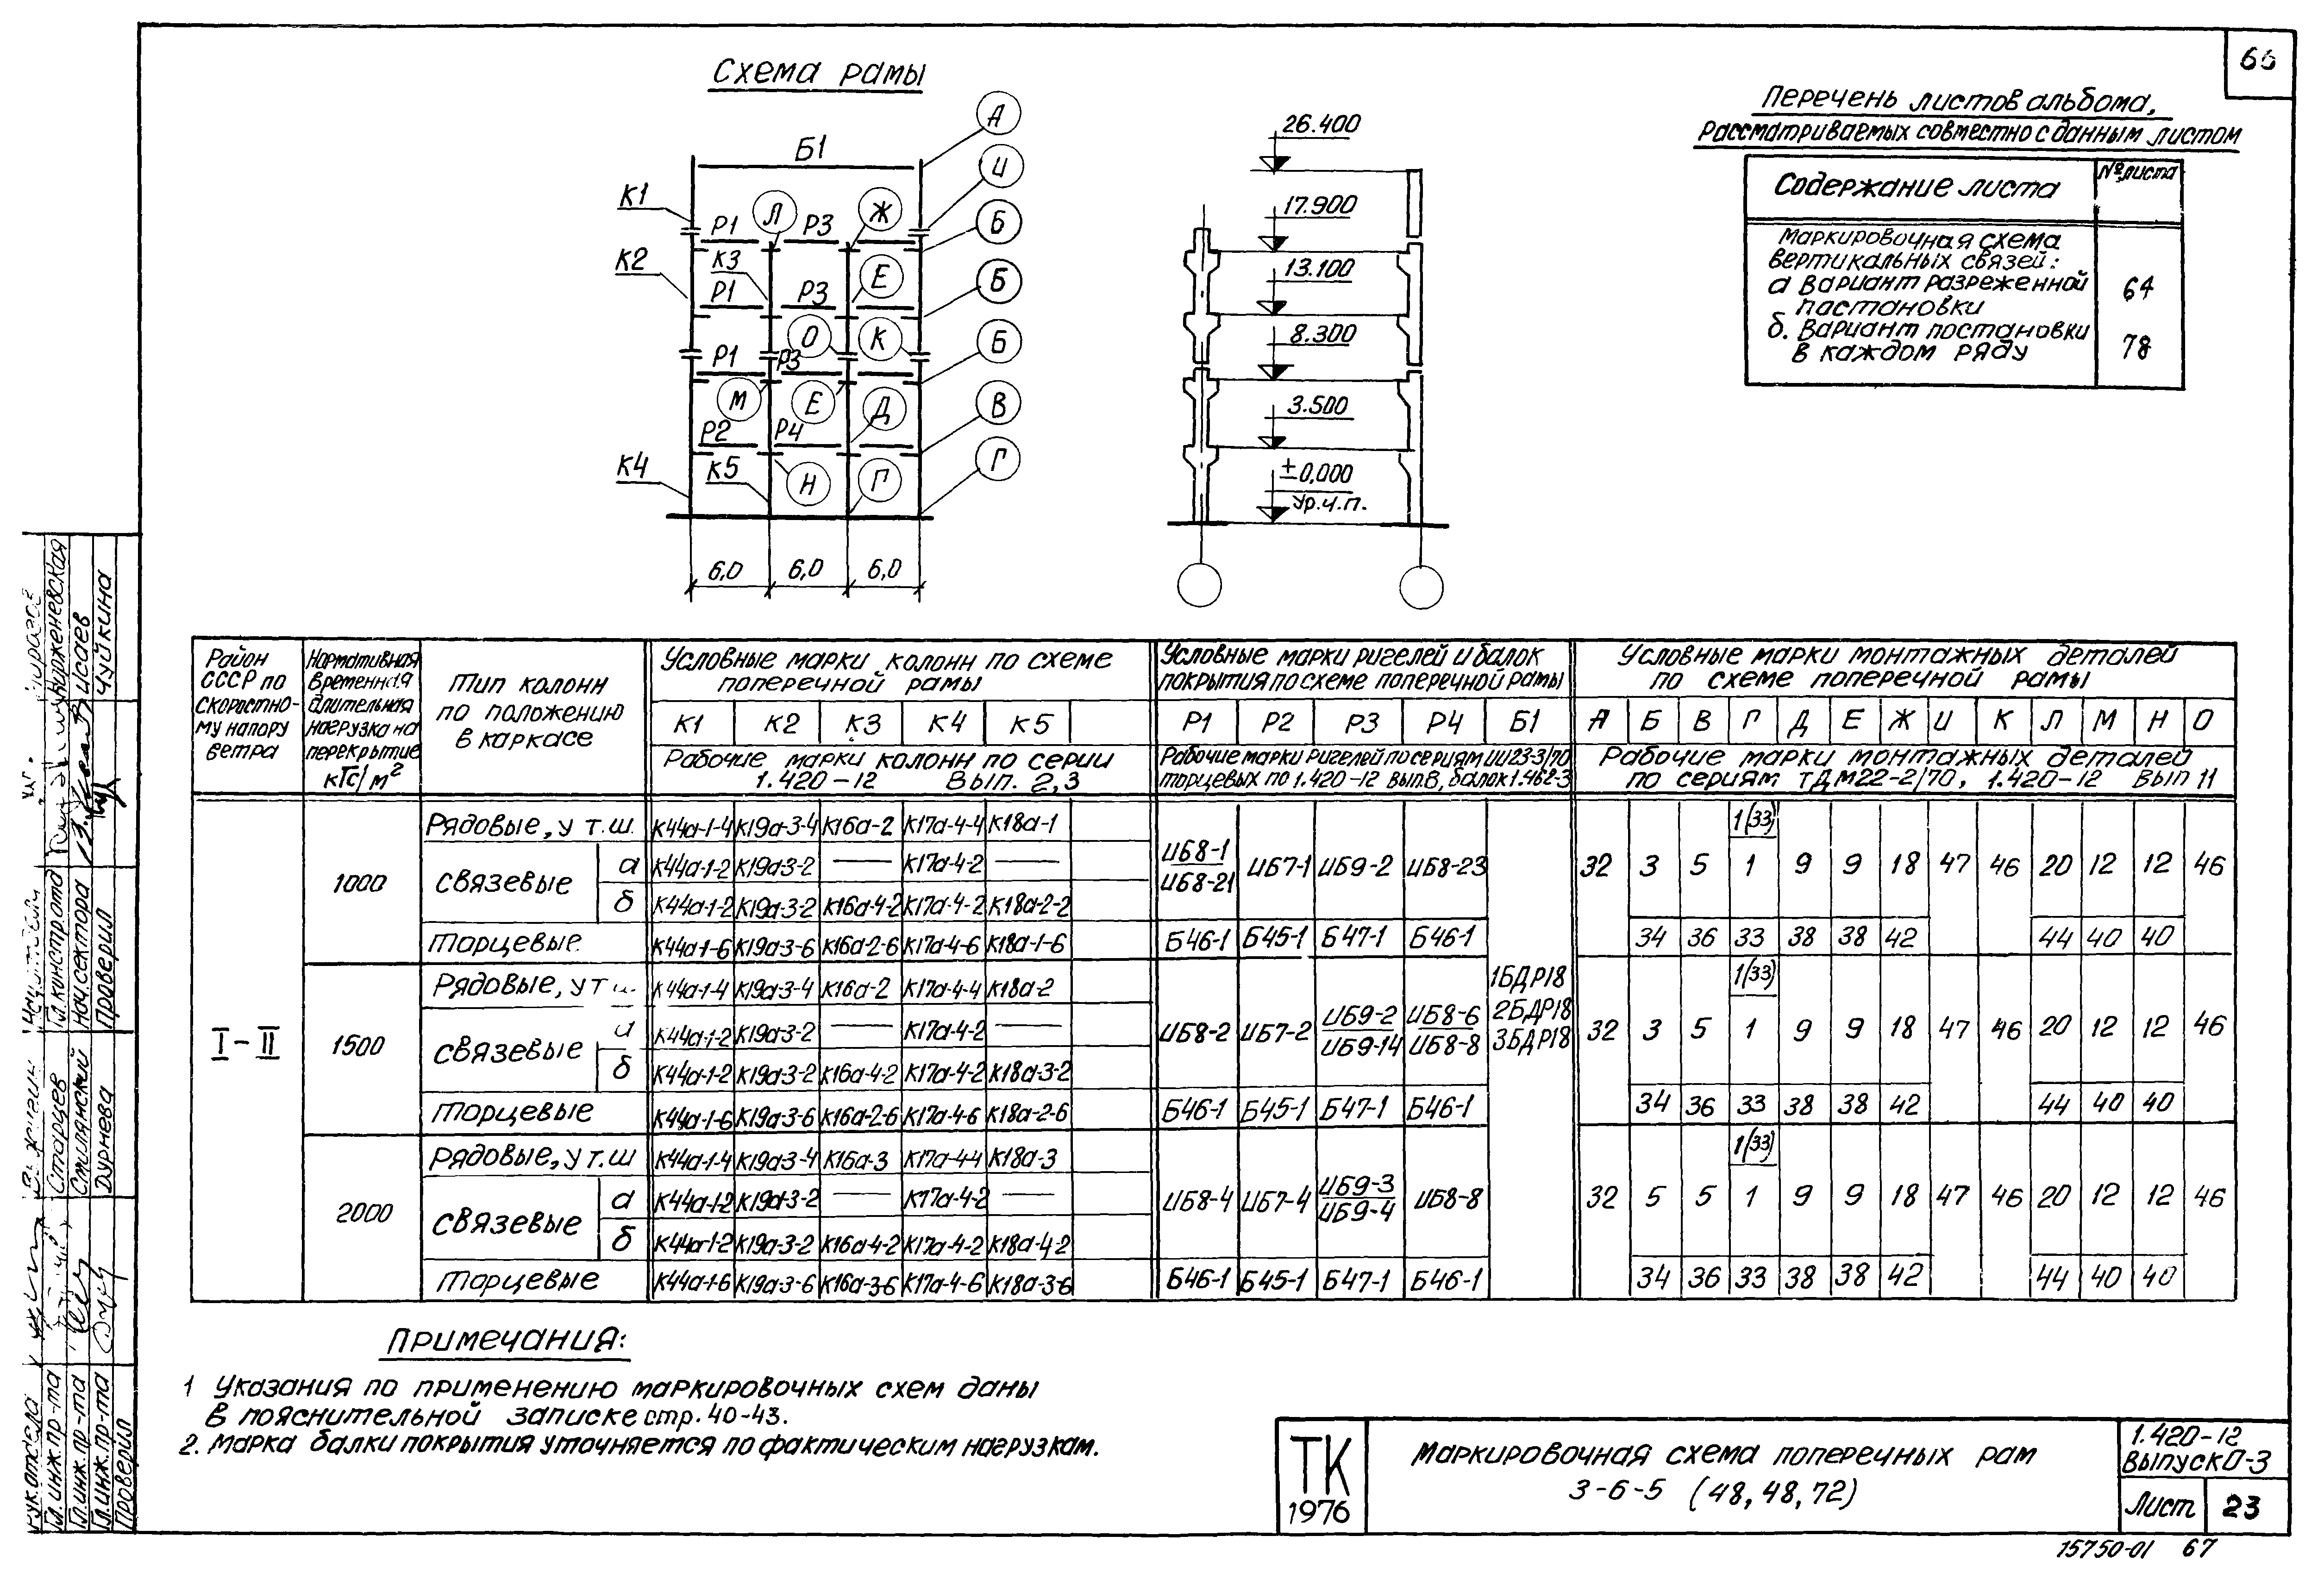 66
Схема рамы
Б1
А
И
Б
Б
Б
В
Г
К1
К2
К3
К4
К5
Р1
Л
Р3
Ж
Р1
Р3
Е
О
К
Р1
Р3
М
Е
Д
Р2
Р4
Н
Г
6,0
6,0
6,0
26.400
17.900
13.100
8.300
3.500
±0,000
Ур.ч.п.
Перечень листов альбома,
рассматриваемых совместно с данным листом
Содержание листа
№ листа
Маркировочная схема
вертикальных связей:
а Вариант разреженной
пастановки
64
б. Вариант постановки
в каждом ряду
78
Район
СССР по
скоростно-
му напору
ветра
Нормативная
временная
длительная
нагрузка на
перекрытие
кГс/м²
Тип колонн
по положению
в каркасе
Условные марки колонн по схеме
поперечной рамы
К1 К2 К3 К4 К5
Рабочие марки колонн по серии
1.420-12 Вып. 2,3
Условные марки ригелей и балок
покрытия по схеме поперечной рамы
Р1 Р2 Р3 Р4 Б1
Рабочие марки ригелей по сериям ИИ23-3/70
торцевых по 1.420-12 вып.8, балок 1.462-3
Условные марки монтажных деталей
по схеме поперечной рамы
А Б В Г Д Е Ж И К Л М Н О
Рабочие марки монтажных деталей
по сериям ТДМ22-2/70, 1.420-12 вып 11
I-II
1000
Рядовые, у т.ш. К44а-1-4 К19а-3-4 К16а-2 К17а-4-4 К18а-1
связевые
а К44а-1-2 К19а-3-2 — К17а-4-2 —
б К44а-1-2 К19а-3-2 К16а-4-2 К17а-4-2 К18а-2-2
торцевые К44а-1-6 К19а-3-6 К16а-2-6 К17а-4-6 К18а-1-6
ИБ8-1
ИБ8-21
ИБ7-1 ИБ9-2 ИБ8-23
Б46-1 Б45-1 Б47-1 Б46-1
1(33)
32 3 5 1 9 9 18 47 46 20 12 12 46
34 36 33 38 38 42 44 40 40
1500
Рядовые, у т.ш К44а-1-4 К19а-3-4 К16а-2 К17а-4-4 К18а-2
связевые
а К44а-1-2 К19а-3-2 — К17а-4-2 —
б К44а-1-2 К19а-3-2 К16а-4-2 К17а-4-2 К18а-3-2
торцевые К44а-1-6 К19а-3-6 К16а-2-6 К17а-4-6 К18а-2-6
ИБ8-2 ИБ7-2
ИБ9-2
ИБ9-14
ИБ8-6
ИБ8-8
1БДР18
2БДР18
3БДР18
Б46-1 Б45-1 Б47-1 Б46-1
1(33)
32 3 5 1 9 9 18 47 46 20 12 12 46
34 36 33 38 38 42 44 40 40
2000
Рядовые, у т.ш К44а-1-4 К19а-3-4 К16а-3 К17а-4-4 К18а-3
связевые
а К44а-1-2 К19а-3-2 — К17а-4-2 —
б К44а-1-2 К19а-3-2 К16а-4-2 К17а-4-2 К18а-4-2
торцевые К44а-1-6 К19а-3-6 К16а-3-6 К17а-4-6 К18а-3-6
ИБ8-4 ИБ7-4
ИБ9-3
ИБ9-4
ИБ8-8
Б46-1 Б45-1 Б47-1 Б46-1
1(33)
32 5 5 1 9 9 18 47 46 20 12 12 46
34 36 33 38 38 42 44 40 40
Примечания:
1 Указания по применению маркировочных схем даны
в пояснительной записке стр. 40-43.
2. Марка балки покрытия уточняется по фактическим нагрузкам.
ТК
1976
Маркировочная схема поперечных рам
3-6-5 (48, 48, 72)
1.420-12
выпуск 0-3
Лист 23
15750-01 67
Рук.отдела
Гл.инж.пр-та Старцев
Гл.инж.пр-та Смилянский
Гл.инж.пр-та Дурнева
Проверил
Гл.констр.ота
Нач.сектора Исаев
Проверил Чуйкина